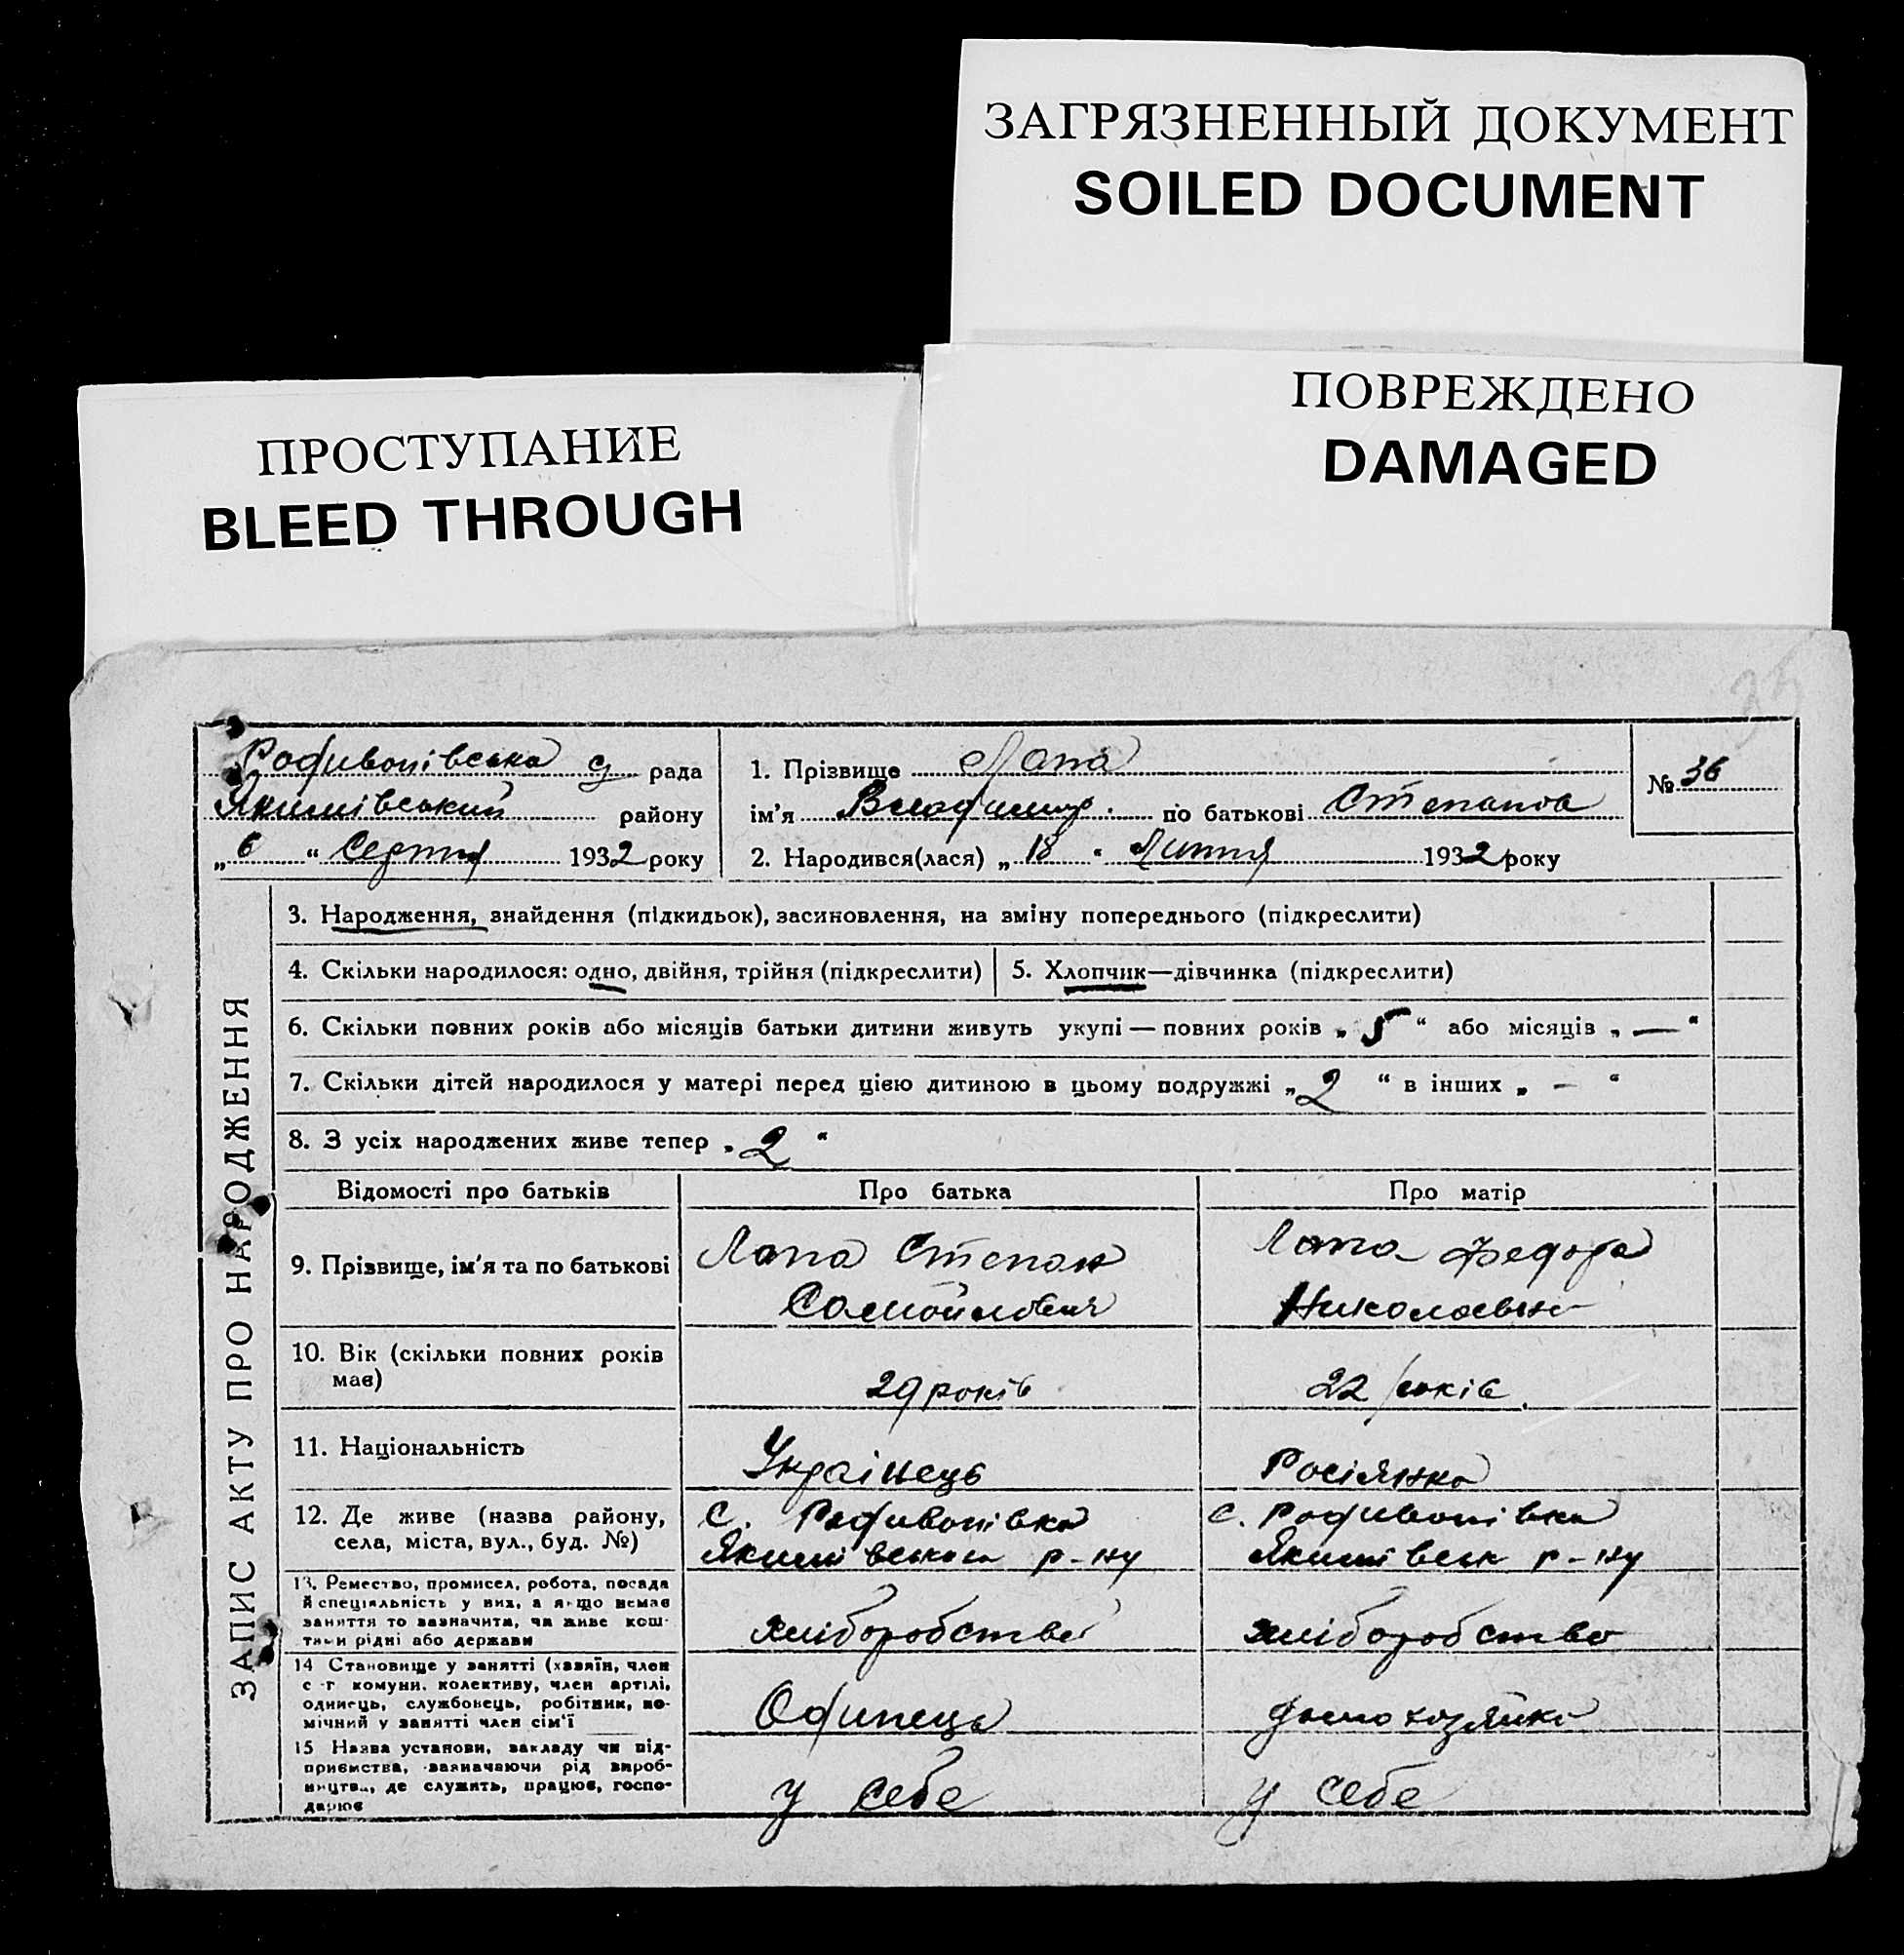 ЗАГРЯЗНЕННЫЙ ДОКУМЕНТ
SOILED DOCUMENT
ПОВРЕЖДЕНО
DAMAGED
ПРОСТУПАНИЕ
BLEED THROUGH
35
Радивонівська с рада
Якимівський району
„ 6 “ Серпня 1932 року
1. Прізвище Лапа
ім'я Володимир. по батькові Степанов
2. Народився(лася) „ 18 “ Липня 1932 року
№ 36
ЗАПИС АКТУ ПРО НАРОДЖЕННЯ
3. Народження, знайдення (підкидьок), засиновлення, на зміну попереднього (підкреслити)
4. Скільки народилося: одно, двійня, трійня (підкреслити)
5. Хлопчик—дівчинка (підкреслити)
6. Скільки повних років або місяців батьки дитини живуть укупі — повних років „ 5 “ або місяців „ — “
7. Скільки дітей народилося у матері перед цією дитиною в цьому подружжі „ 2 “ в інших „ - “
8. З усіх народжених живе тепер „ 2 “
Відомості про батьків Про батька Про матір
9. Прізвище, ім'я та по батькові
Лапа Степан
Самойлович
Лапа Федора
Николаевна
10. Вік (скільки повних років
має)
29 років
22 років
11. Національність
Українець
Росіянка
12. Де живе (назва району,
села, міста, вул., буд. №)
с. Радивонівка
Якимівського р-ну
с. Радивонівка
Якимівськ р-ну
13. Ремество, промисел, робота, посада
й спеціяльність у них, а якщо немає
заняття то зазначити, чи живе кош-
тами рідні або держави
хліборобство
хліборобство
14 Становище у занятті (хазяїн, член
с.-г комуни, колективу, член артілі,
одинець, службовець, робітник, по-
мічний у занятті член сім'ї
Одинець
домохозяйка
15 Назва установи, закладу чи під-
приємства, зазначаючи рід вироб-
ництва, де служить, працює, госпо-
дарює
у себе
у себе